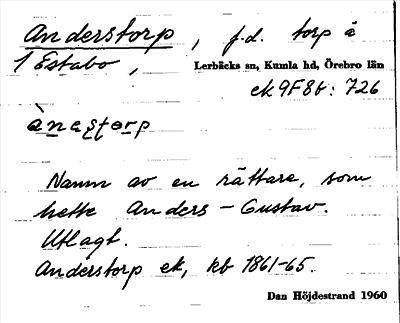 Anderstorp, f.d. torp å
1 Estabo,
Lerbäcks sn, Kumla hd, Örebro län
ek 9F8b: 726
ànaʂʈorp
Namn av en rättare, som
hette Anders-Gustav.
Utlagt.
Anderstorp ek, kb 1861-65.
Dan Höjdestrand 1960